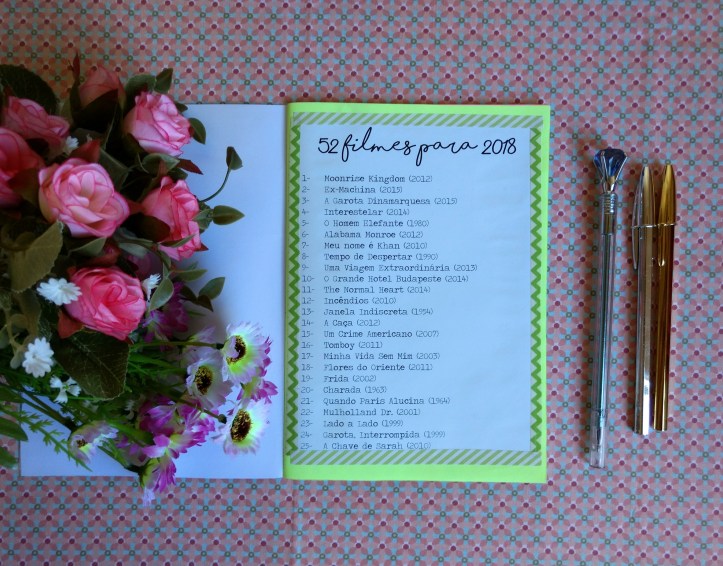 52 filmes para 2018
1- Moonrise Kingdom (2012)
2- Ex-Machina (2015)
3- A Garota Dinamarquesa (2015)
4- Interestelar (2014)
5- O Homem Elefante (1980)
6- Alabama Monroe (2012)
7- Meu nome é Khan (2010)
8- Tempo de Despertar (1990)
9- Uma Viagem Extraordinária (2013)
10- O Grande Hotel Budapeste (2014)
11- The Normal Heart (2014)
12- Incêndios (2010)
13- Janela Indiscreta (1954)
14- A Caça (2012)
15- Um Crime Americano (2007)
16- Tomboy (2011)
17- Minha Vida Sem Mim (2003)
18- Flores do Oriente (2011)
19- Frida (2002)
20- Charada (1963)
21- Quando Paris Alucina (1964)
22- Mulholland Dr. (2001)
23- Lado a Lado (1999)
24- Garota, Interrompida (1999)
25- A Chave de Sarah (2010)